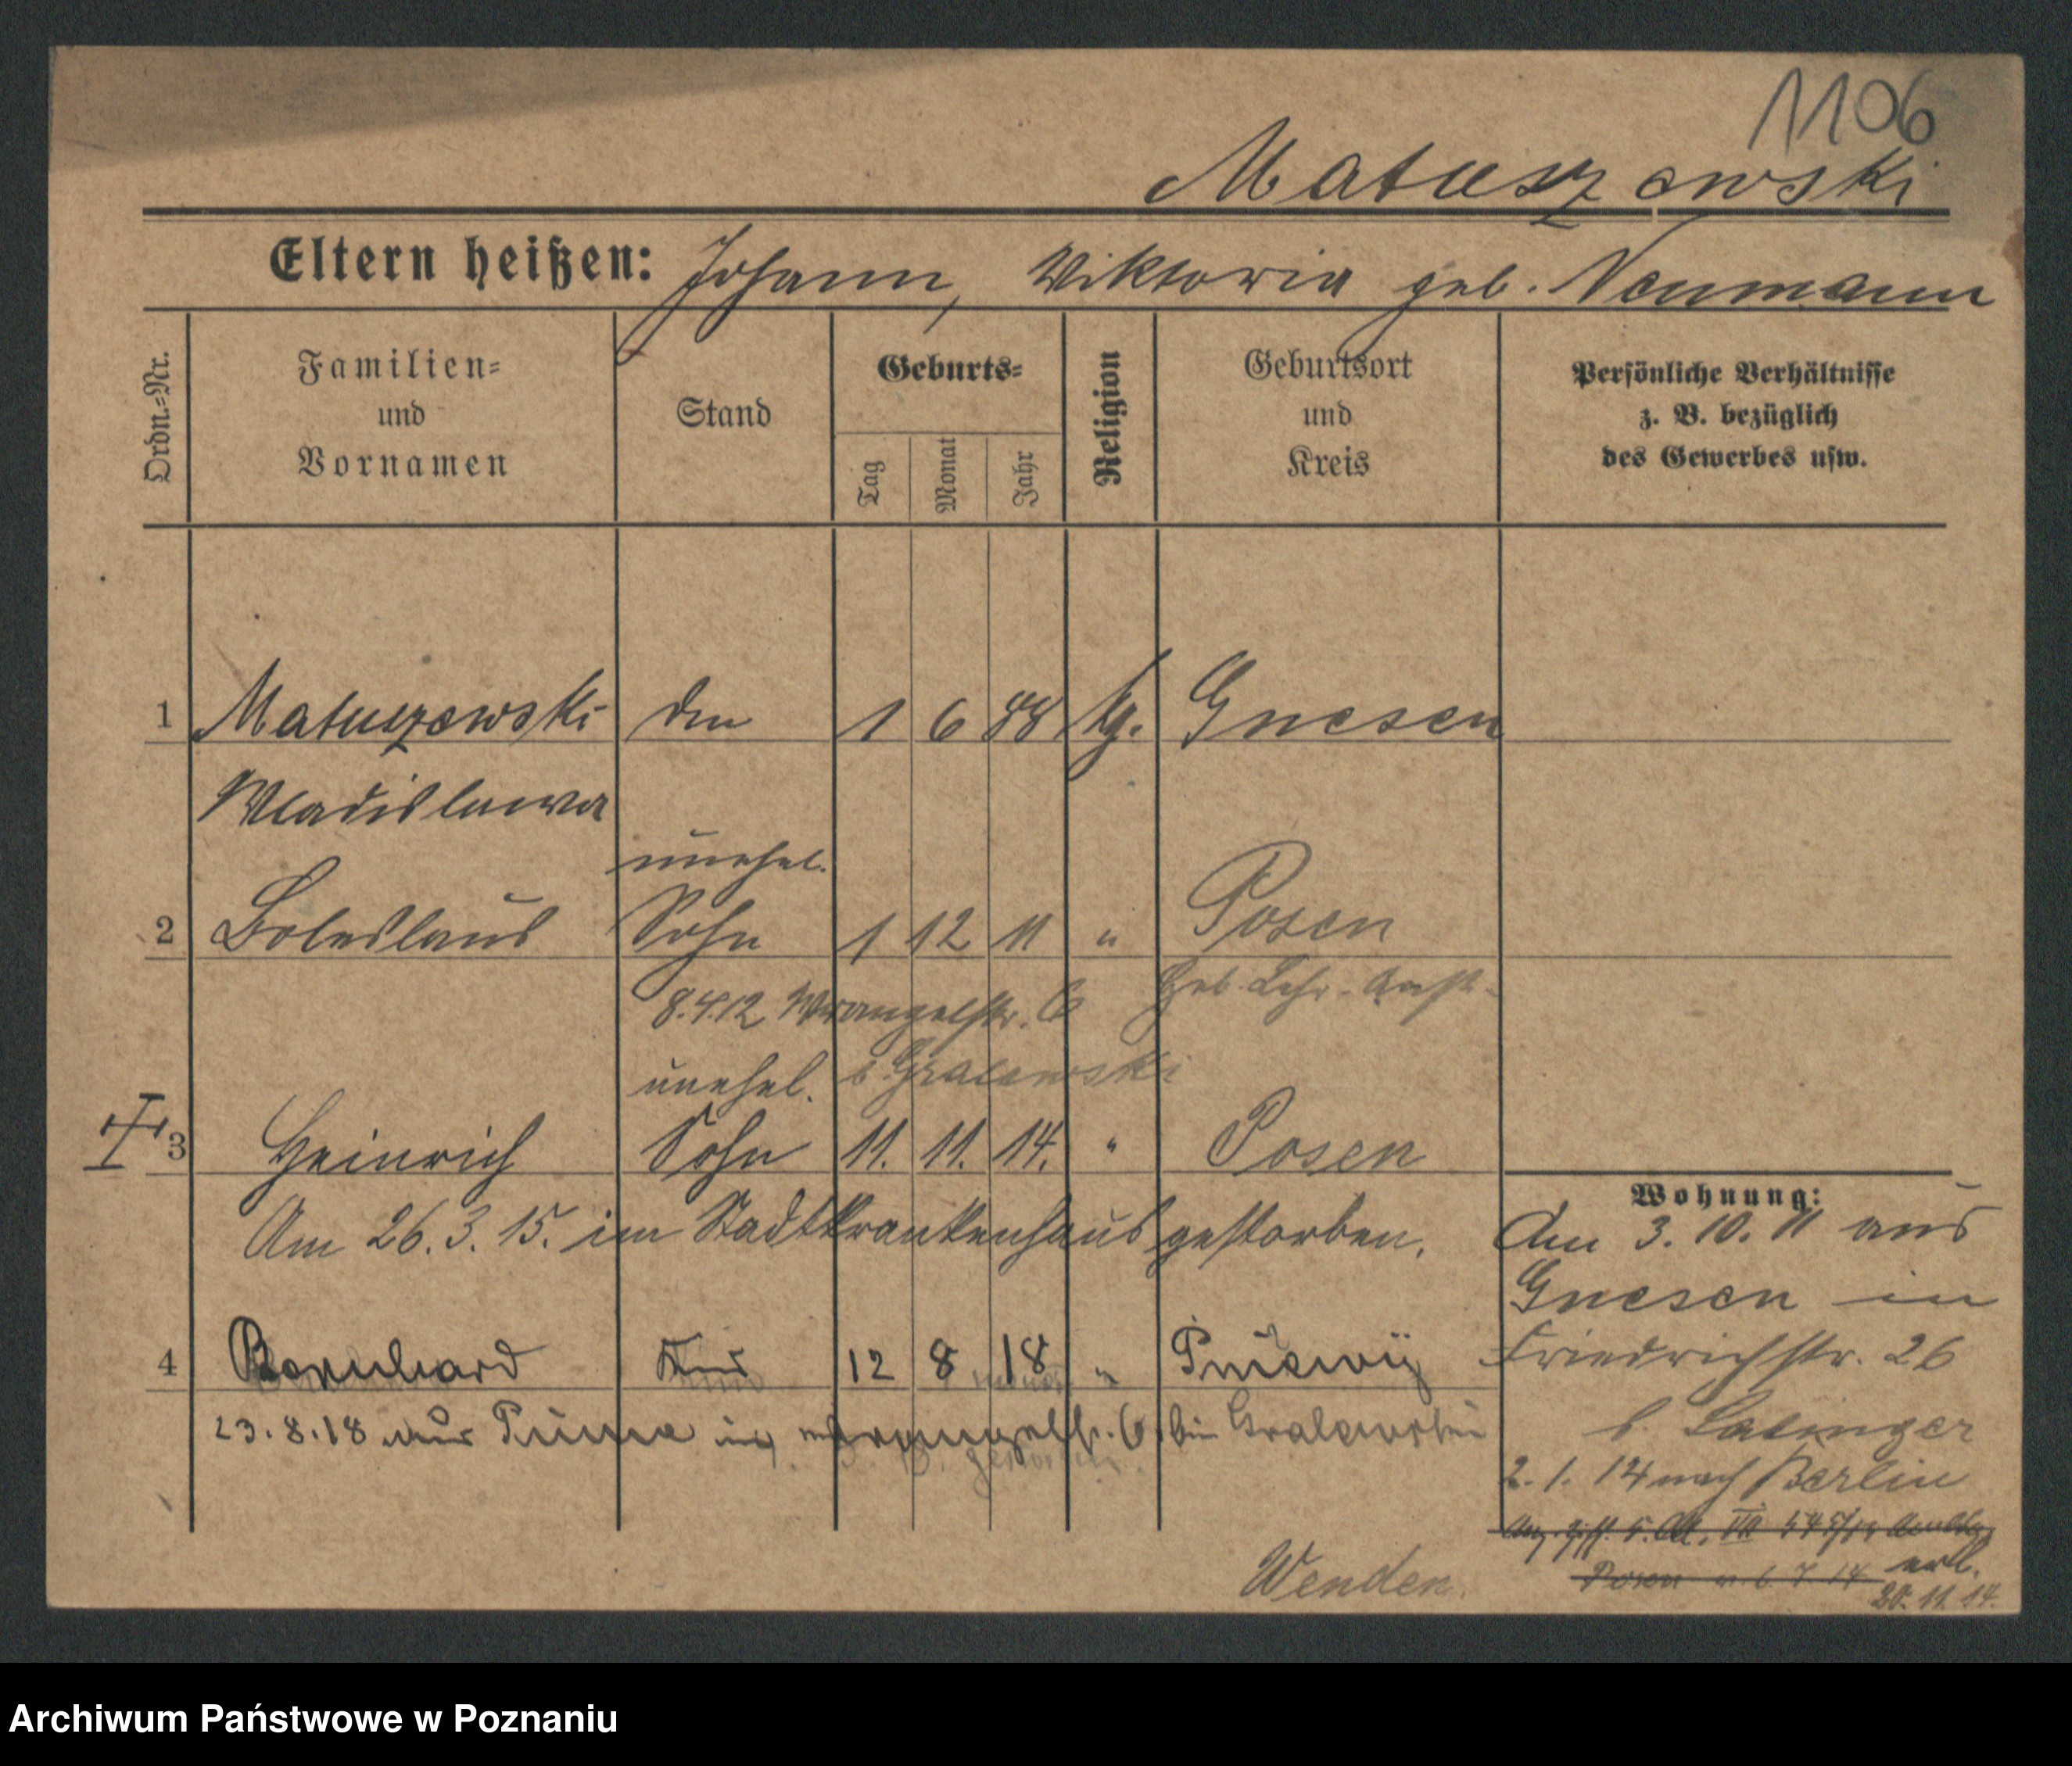 1106
Matuszewski
Eltern heißen: Johann, Wiktoria geb. Neumann
Ordn.=Nr.
Familien=
und
Vornamen
Stand
Geburts=
Tag
Monat
Jahr
Religion
Geburtsort
und
Kreis
Persönliche Verhältnisse
z. B. bezüglich
des Gewerbes usw.
1 Matuszewski 1 6 88 Gnesen
Wladislawa
unehel.
2 Boleslaus Sohn 1 12 11 " Posen
8.4.12 Wrangelstr. 6
Geb. Lehr-Anst.
unehel. b. Gralewski
3 Heinrich Sohn 11. 11. 14. " Posen
Am 26.3.15. im Stadtkrankenhaus gestorben.
4 Bernhard Kind 12 8 18 "
23.8.18 aus in Wrangelstr. 6. bei Gralewski
Wohnung:
Am 3.10.11 aus
Gnesen in
Friedrichstr. 26
b.
2.1.14 nach Berlin
Posen v. 6.7.14 erl.
20.11.14.
Wenden.
Archiwum Państwowe w Poznaniu